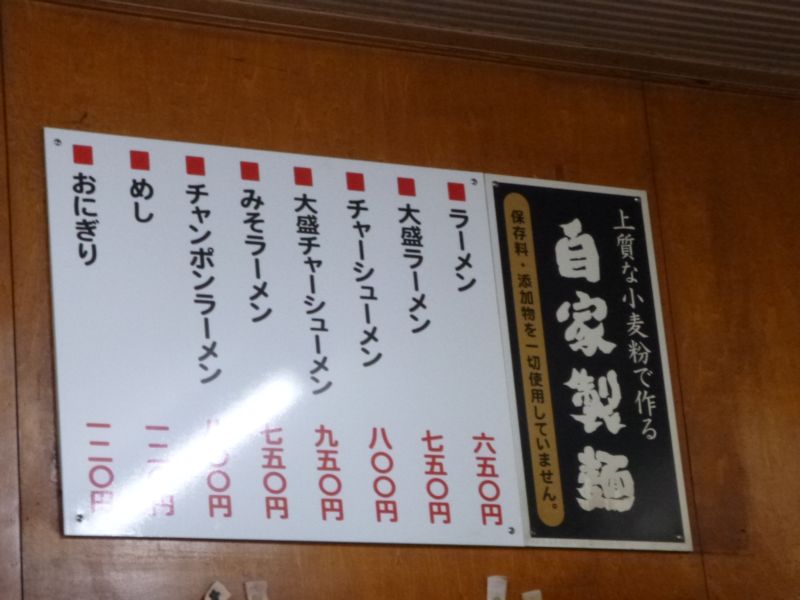 上質な小麦粉で作る
自家製麺
保存料・添加物を一切使用していません。
ラーメン 六五〇円
大盛ラーメン 七五〇円
チャーシューメン 八〇〇円
大盛チャーシューメン 九五〇円
みそラーメン 七五〇円
チャンポンラーメン 八〇〇円
めし 一二〇円
おにぎり 一二〇円